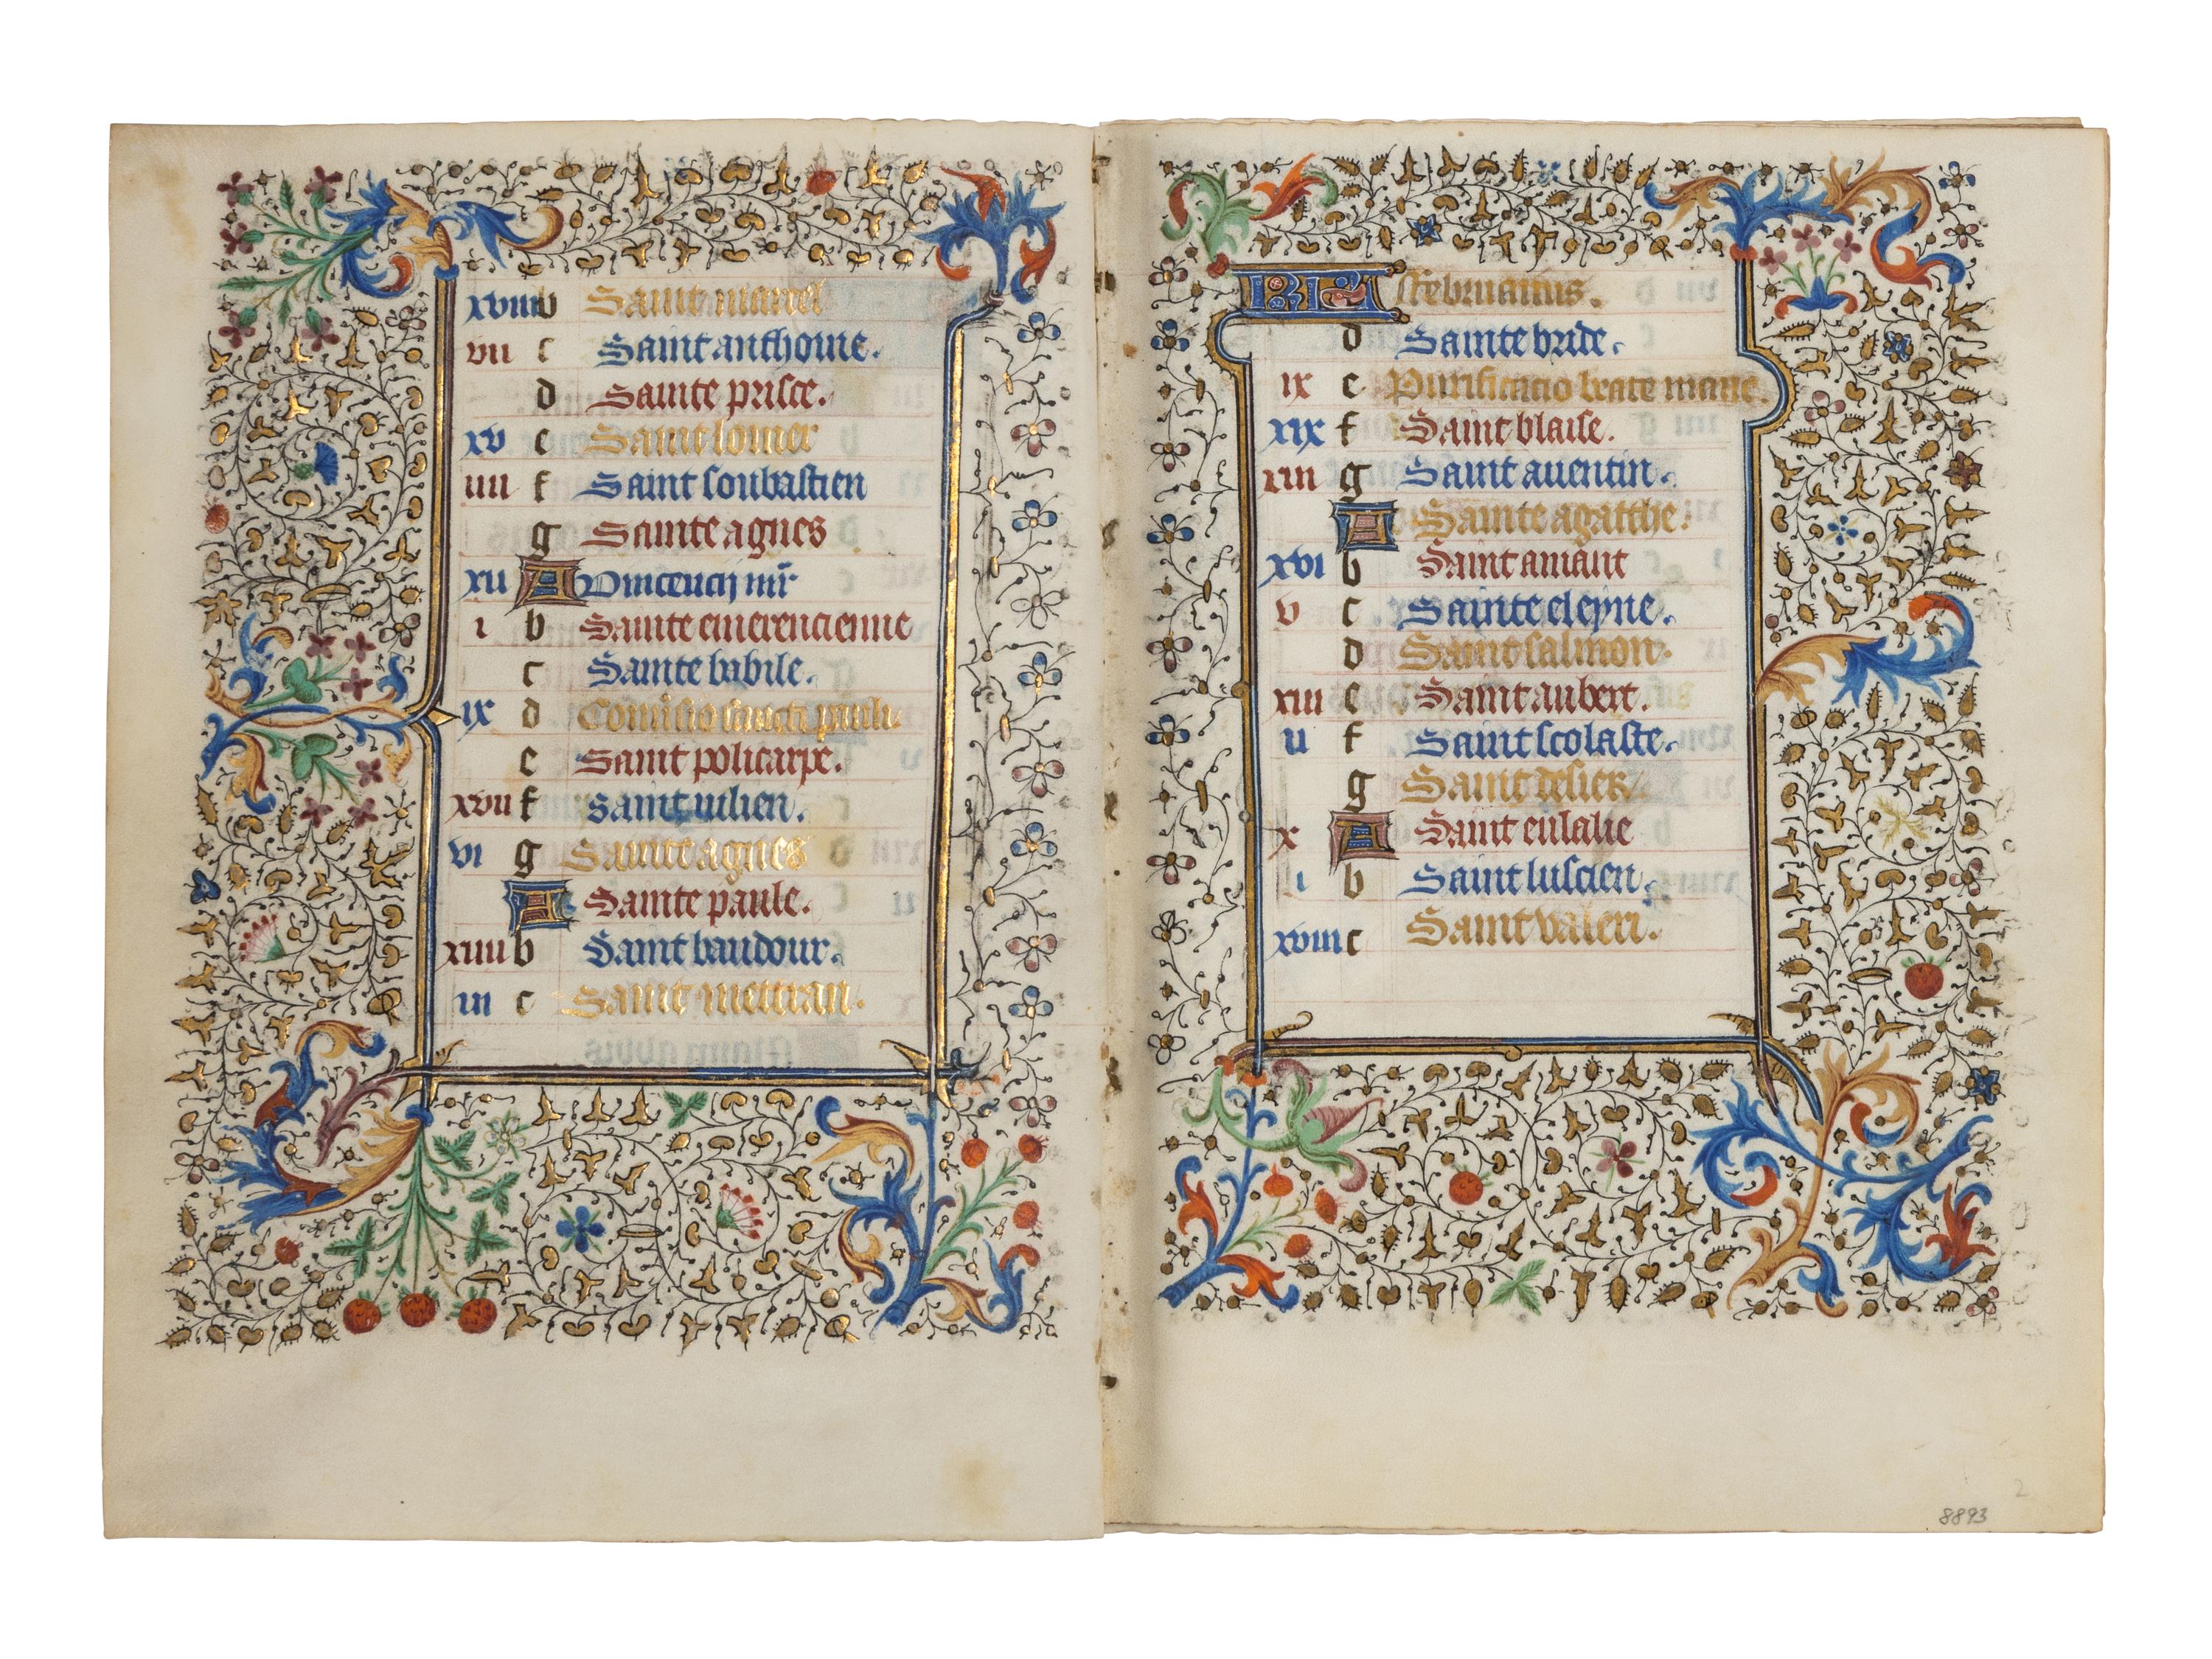 xviii b Saint marcel
vii c Saint anthoine.
d Sainte prisce.
xv e Saint lomer
iiii f Saint soubastien
g Sainte agnes
xii A Vincencij mr
i b Sainte emerencienne
c Sainte babile.
ix d Conversio sancti pauli.
e Saint policarpe.
xvii f saint iulien.
vi g Sainte agnes
A Sainte paule.
xiiii b Saint baudour.
iii c Saint mettran.
KL februarius.
d Sainte bride.
ix e Purificatio beate marie.
xix f Saint blaise.
viii g Saint auentin.
A Sainte agatthe.
xvi b Saint amant
v c Sainte eleyne.
d Saint salmon.
xiii e Saint aubert.
ii f Saint scolaste.
g Saint desier.
x A Saint eulalie
i b Saint luscien.
xviii c Saint valeri.
2
8893